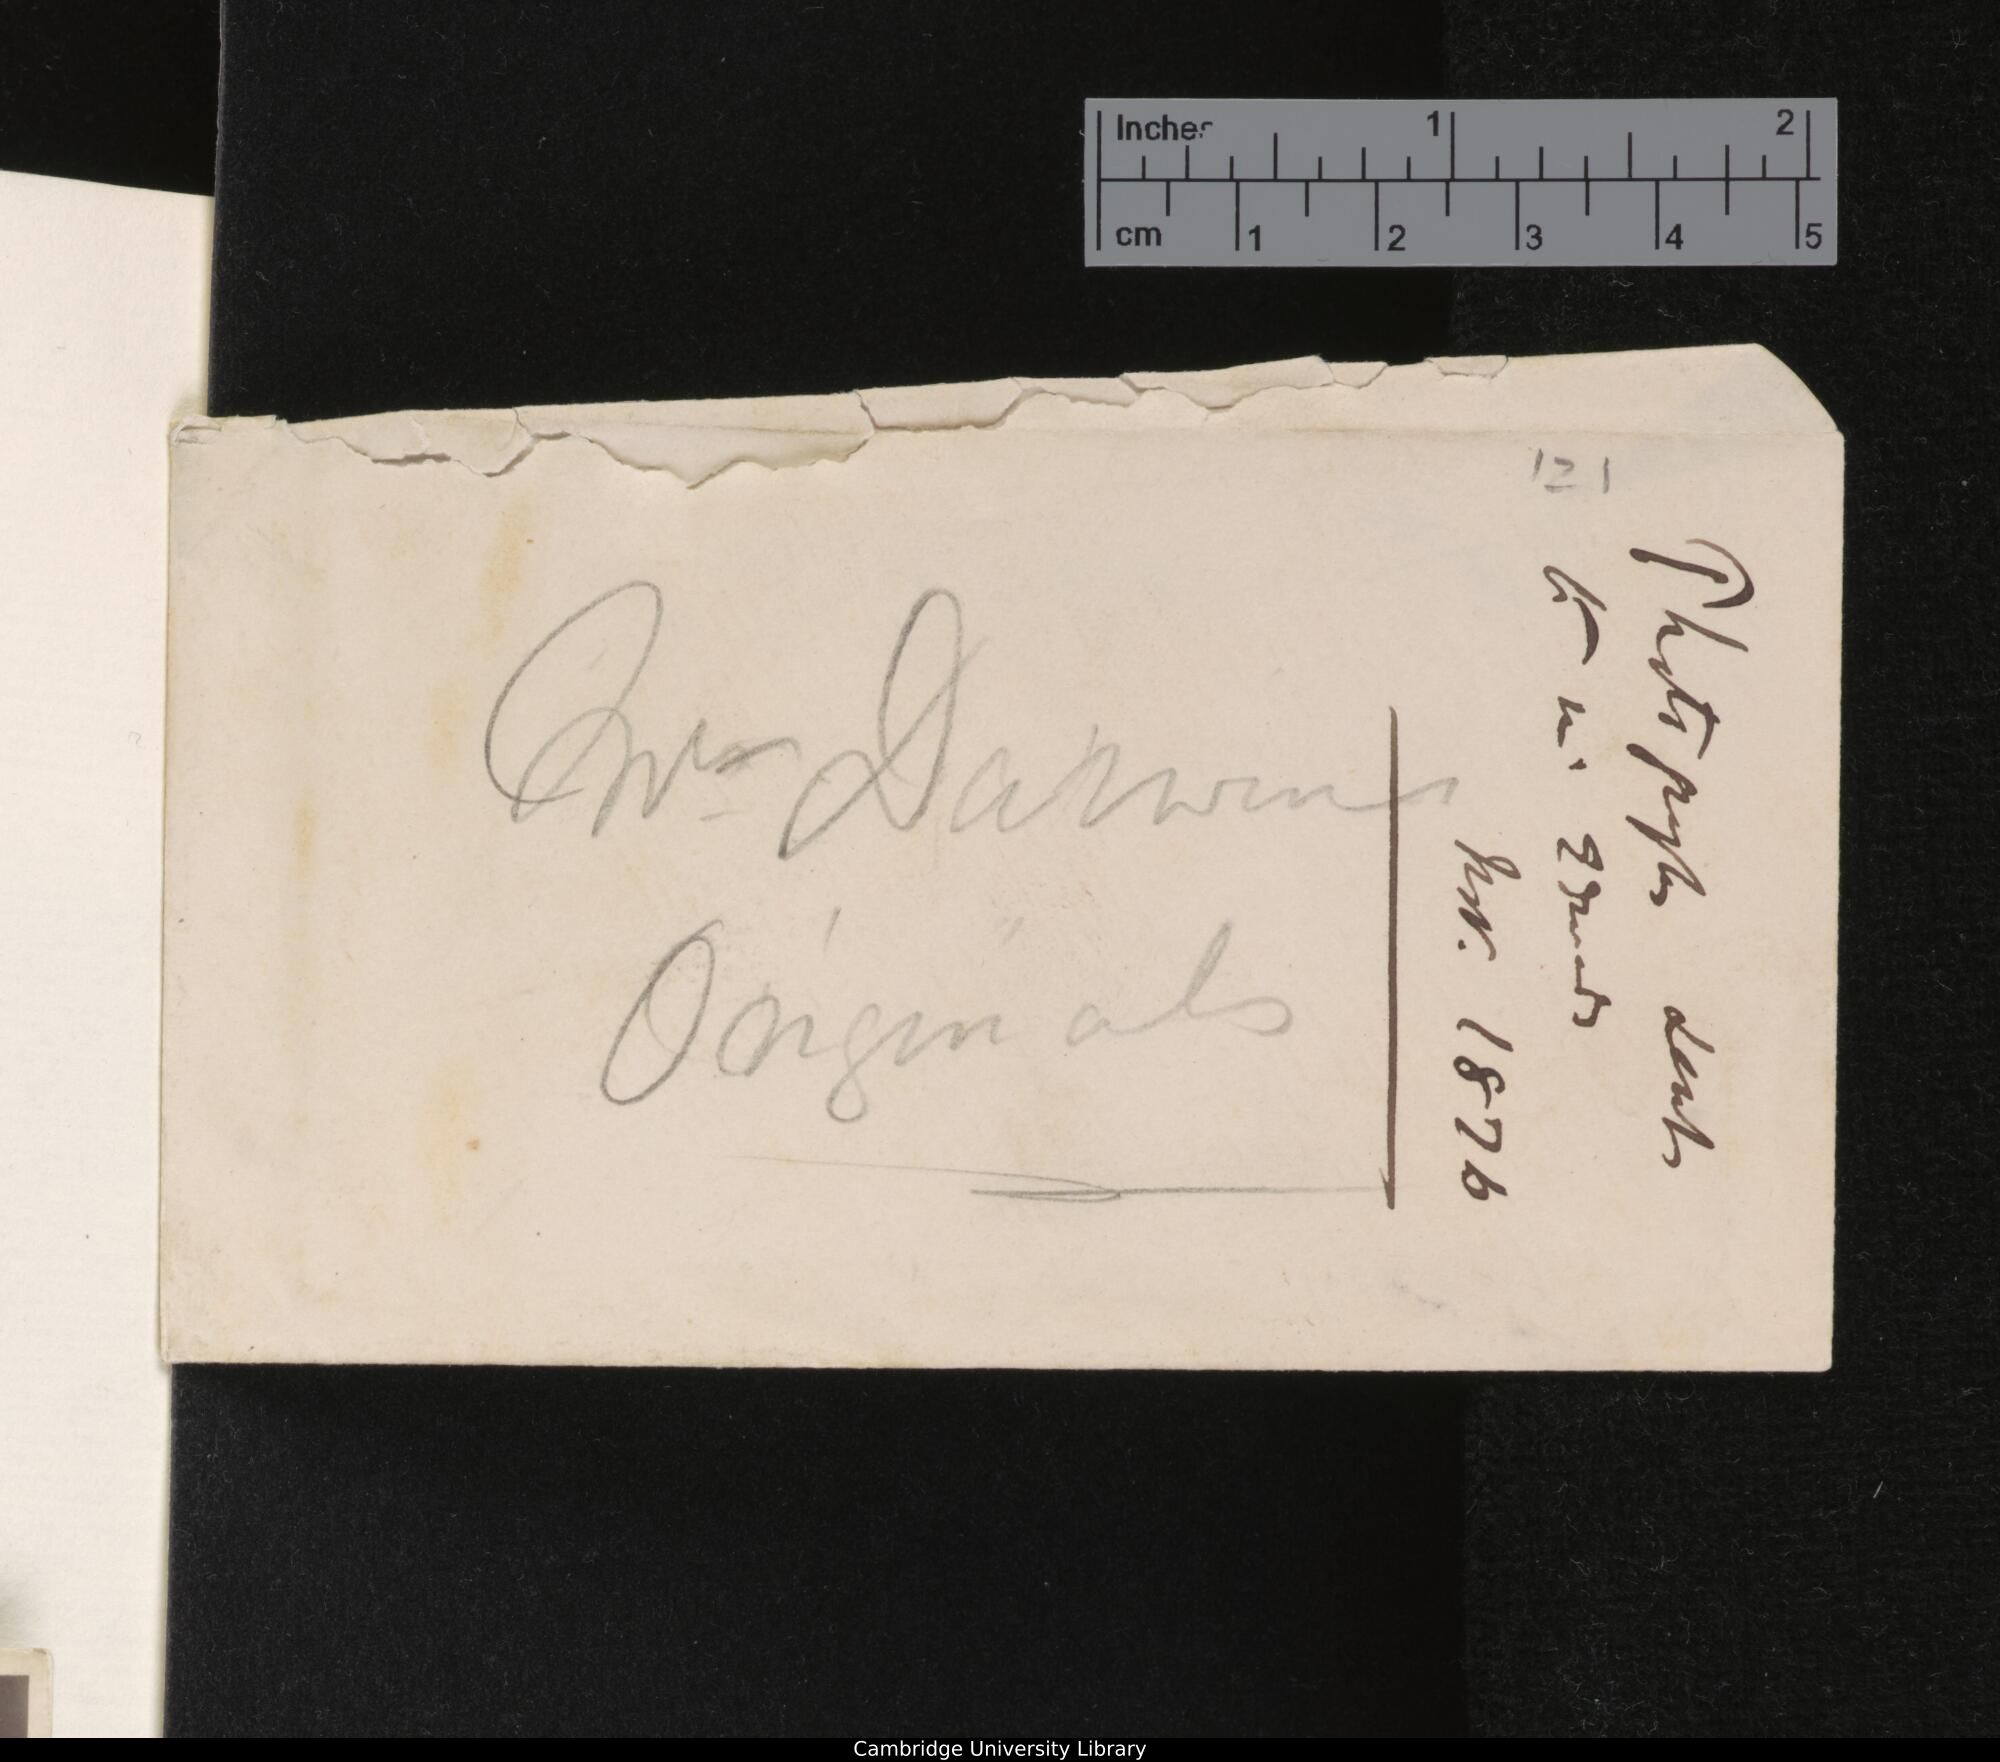 Inches 1 2
cm 1 2 3 4 5
121
Photographs
Nov. 1876
Mrs Darwins
Originals
Cambridge University Library